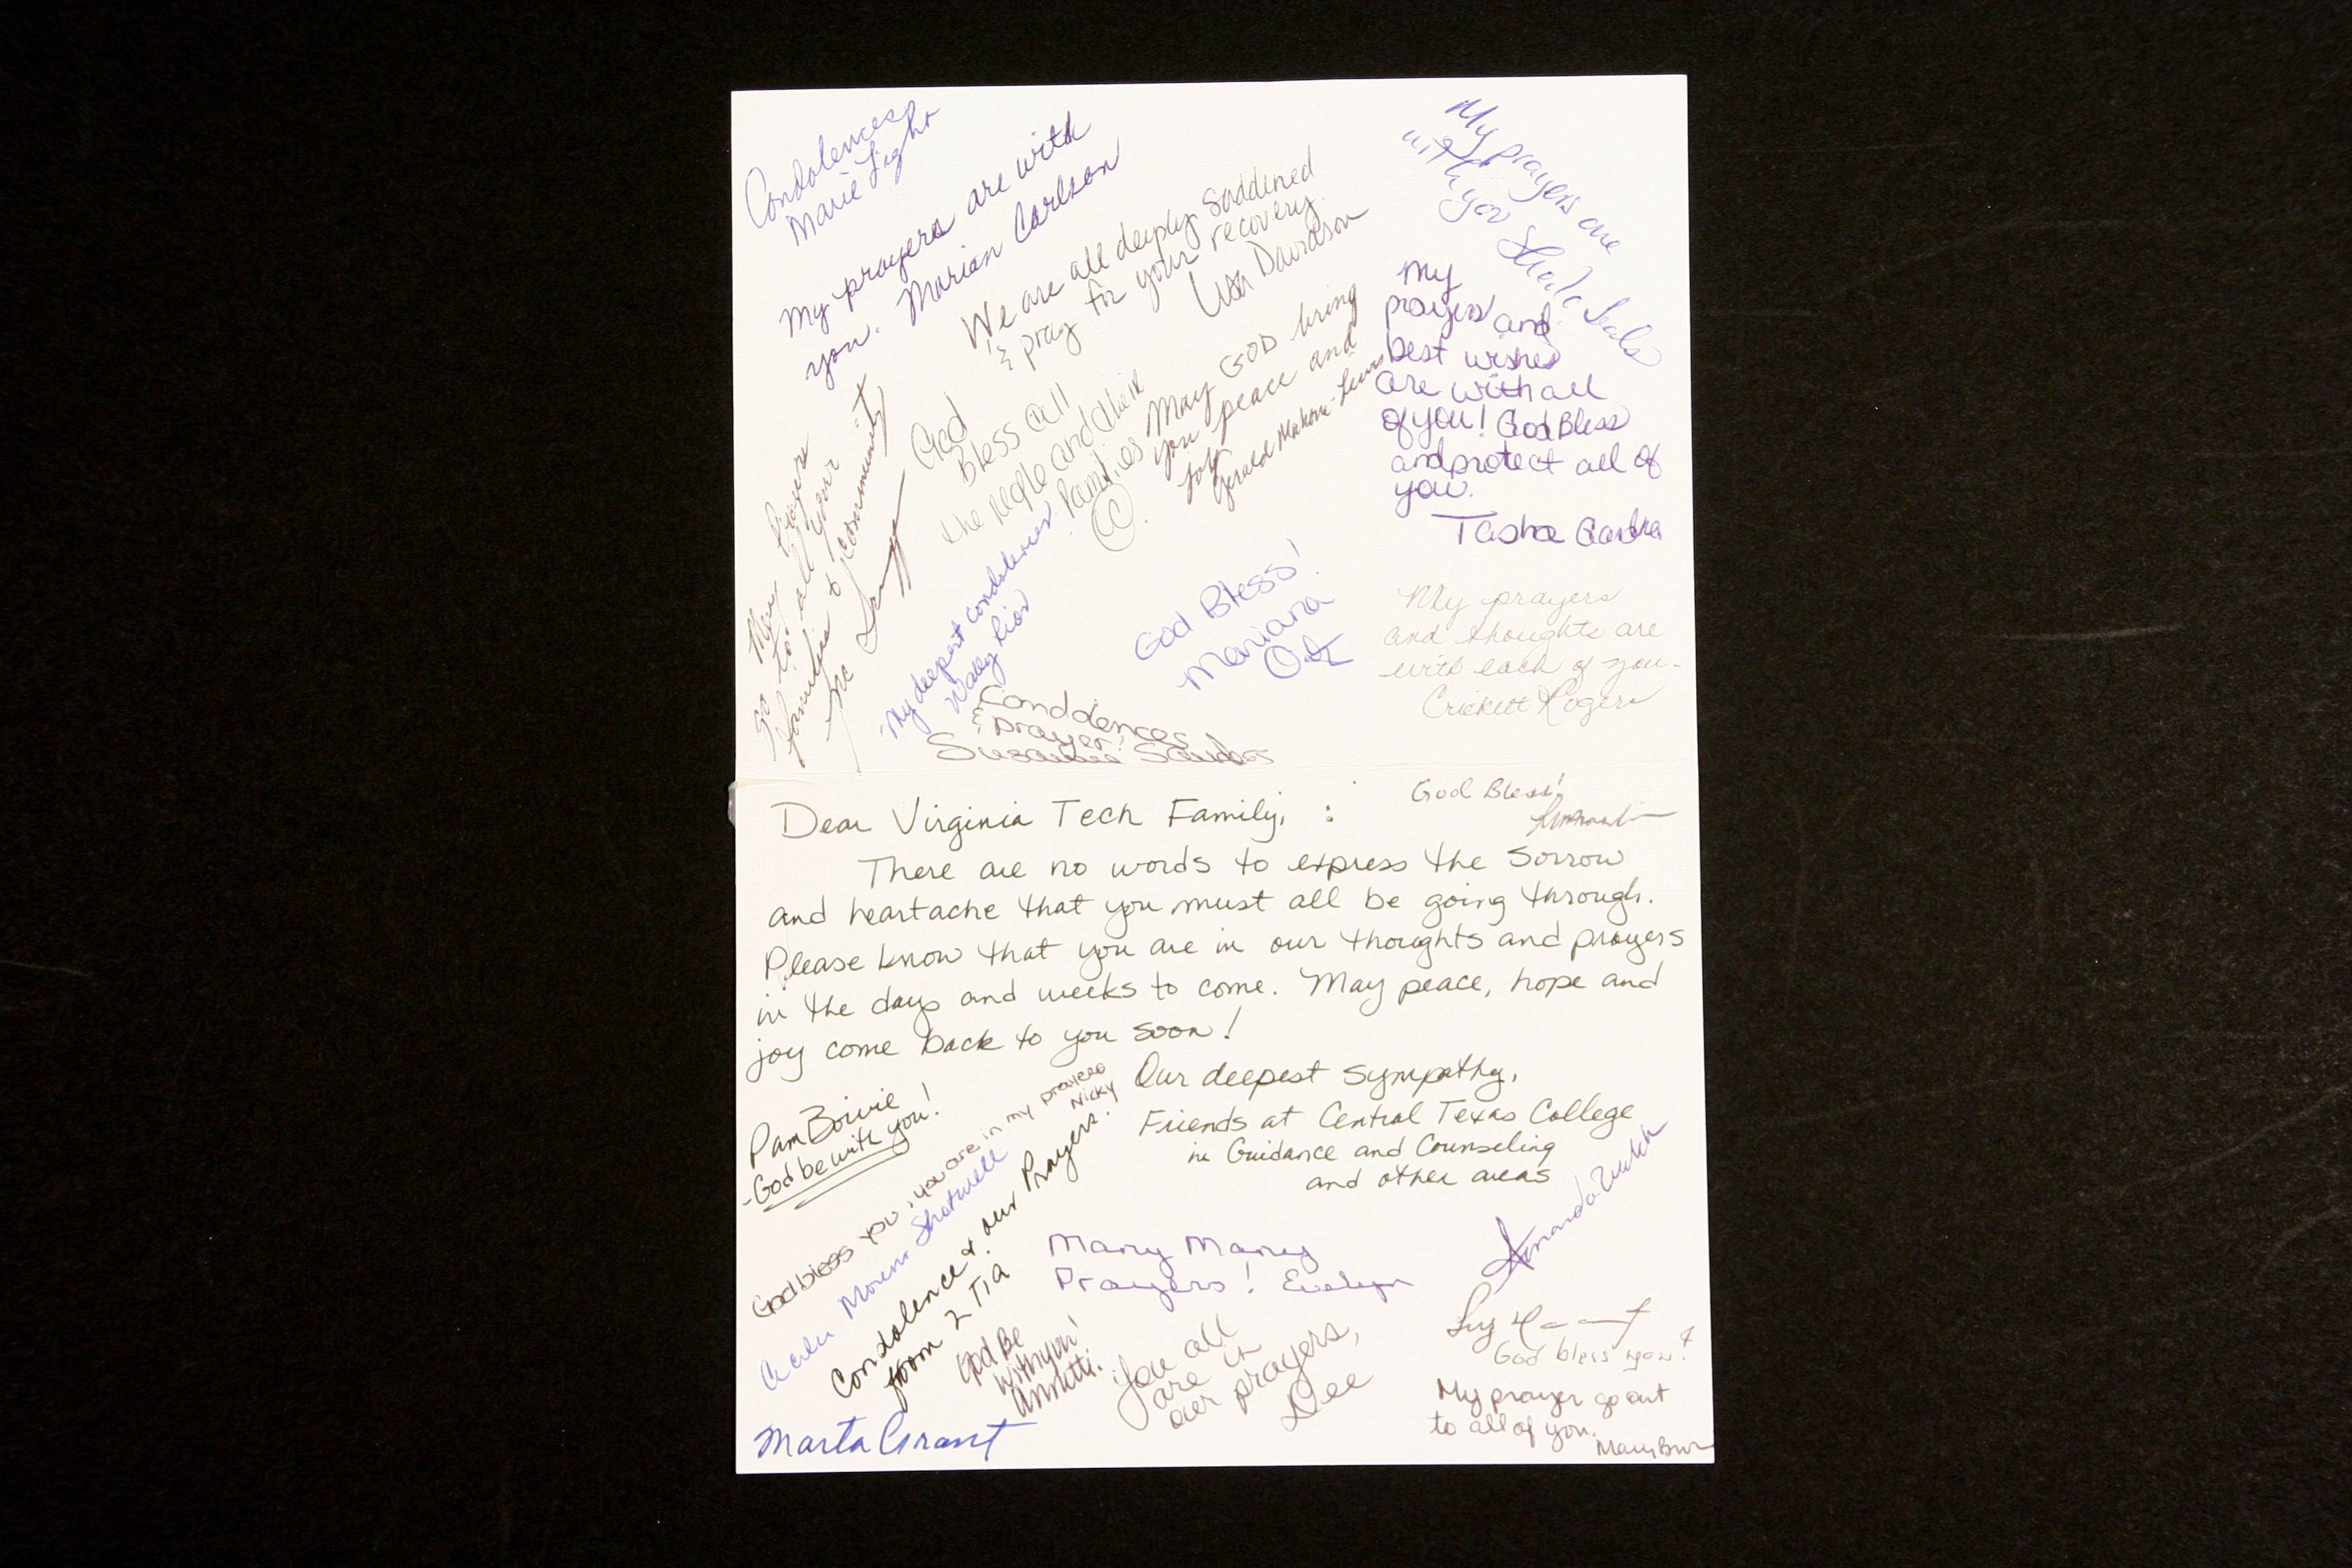 Condolences
Marie Light
My prayers are with
you. Marian Carlson
We are all deeply saddened
& pray for your recovery.
Lisa Davidson
My prayers are
with you
My
prayers and
best wishes
are with all
of you! God Bless
and protect all of
you.
Tasha
May GOD bring
you peace and
joy
Gerald
God
Bless all
the people and their
families
CC
May Prayers
go to all your
families & community
My deepest condolences
Wally
God Bless!
Mariana
My prayers
and thoughts are
with each of you-
Crickett Rogers
Condolences
& Prayers!
Susanne Sanders
God Bless!
Dear Virginia Tech Family, :
There are no words to express the sorrow
and heartache that you must all be going through.
Please know that you are in our thoughts and prayers
in the days and weeks to come. May peace, hope and
joy come back to you soon!
Our deepest sympathy,
Friends at Central Texas College
in Guidance and Counseling
and other areas
Pam Boivie
-God be with you!
God bless you, you are in my prayers
Nicky
Moreno Shotwell
Condolence & our Prayers.
from 2 TIA
Many Many
Prayers! Evelyn
Amanda
God Be
With you!
Annette.
You all
are in
our prayers,
Dee
God bless you!
My prayer go out
to all of you.
Mary
Marta Grant